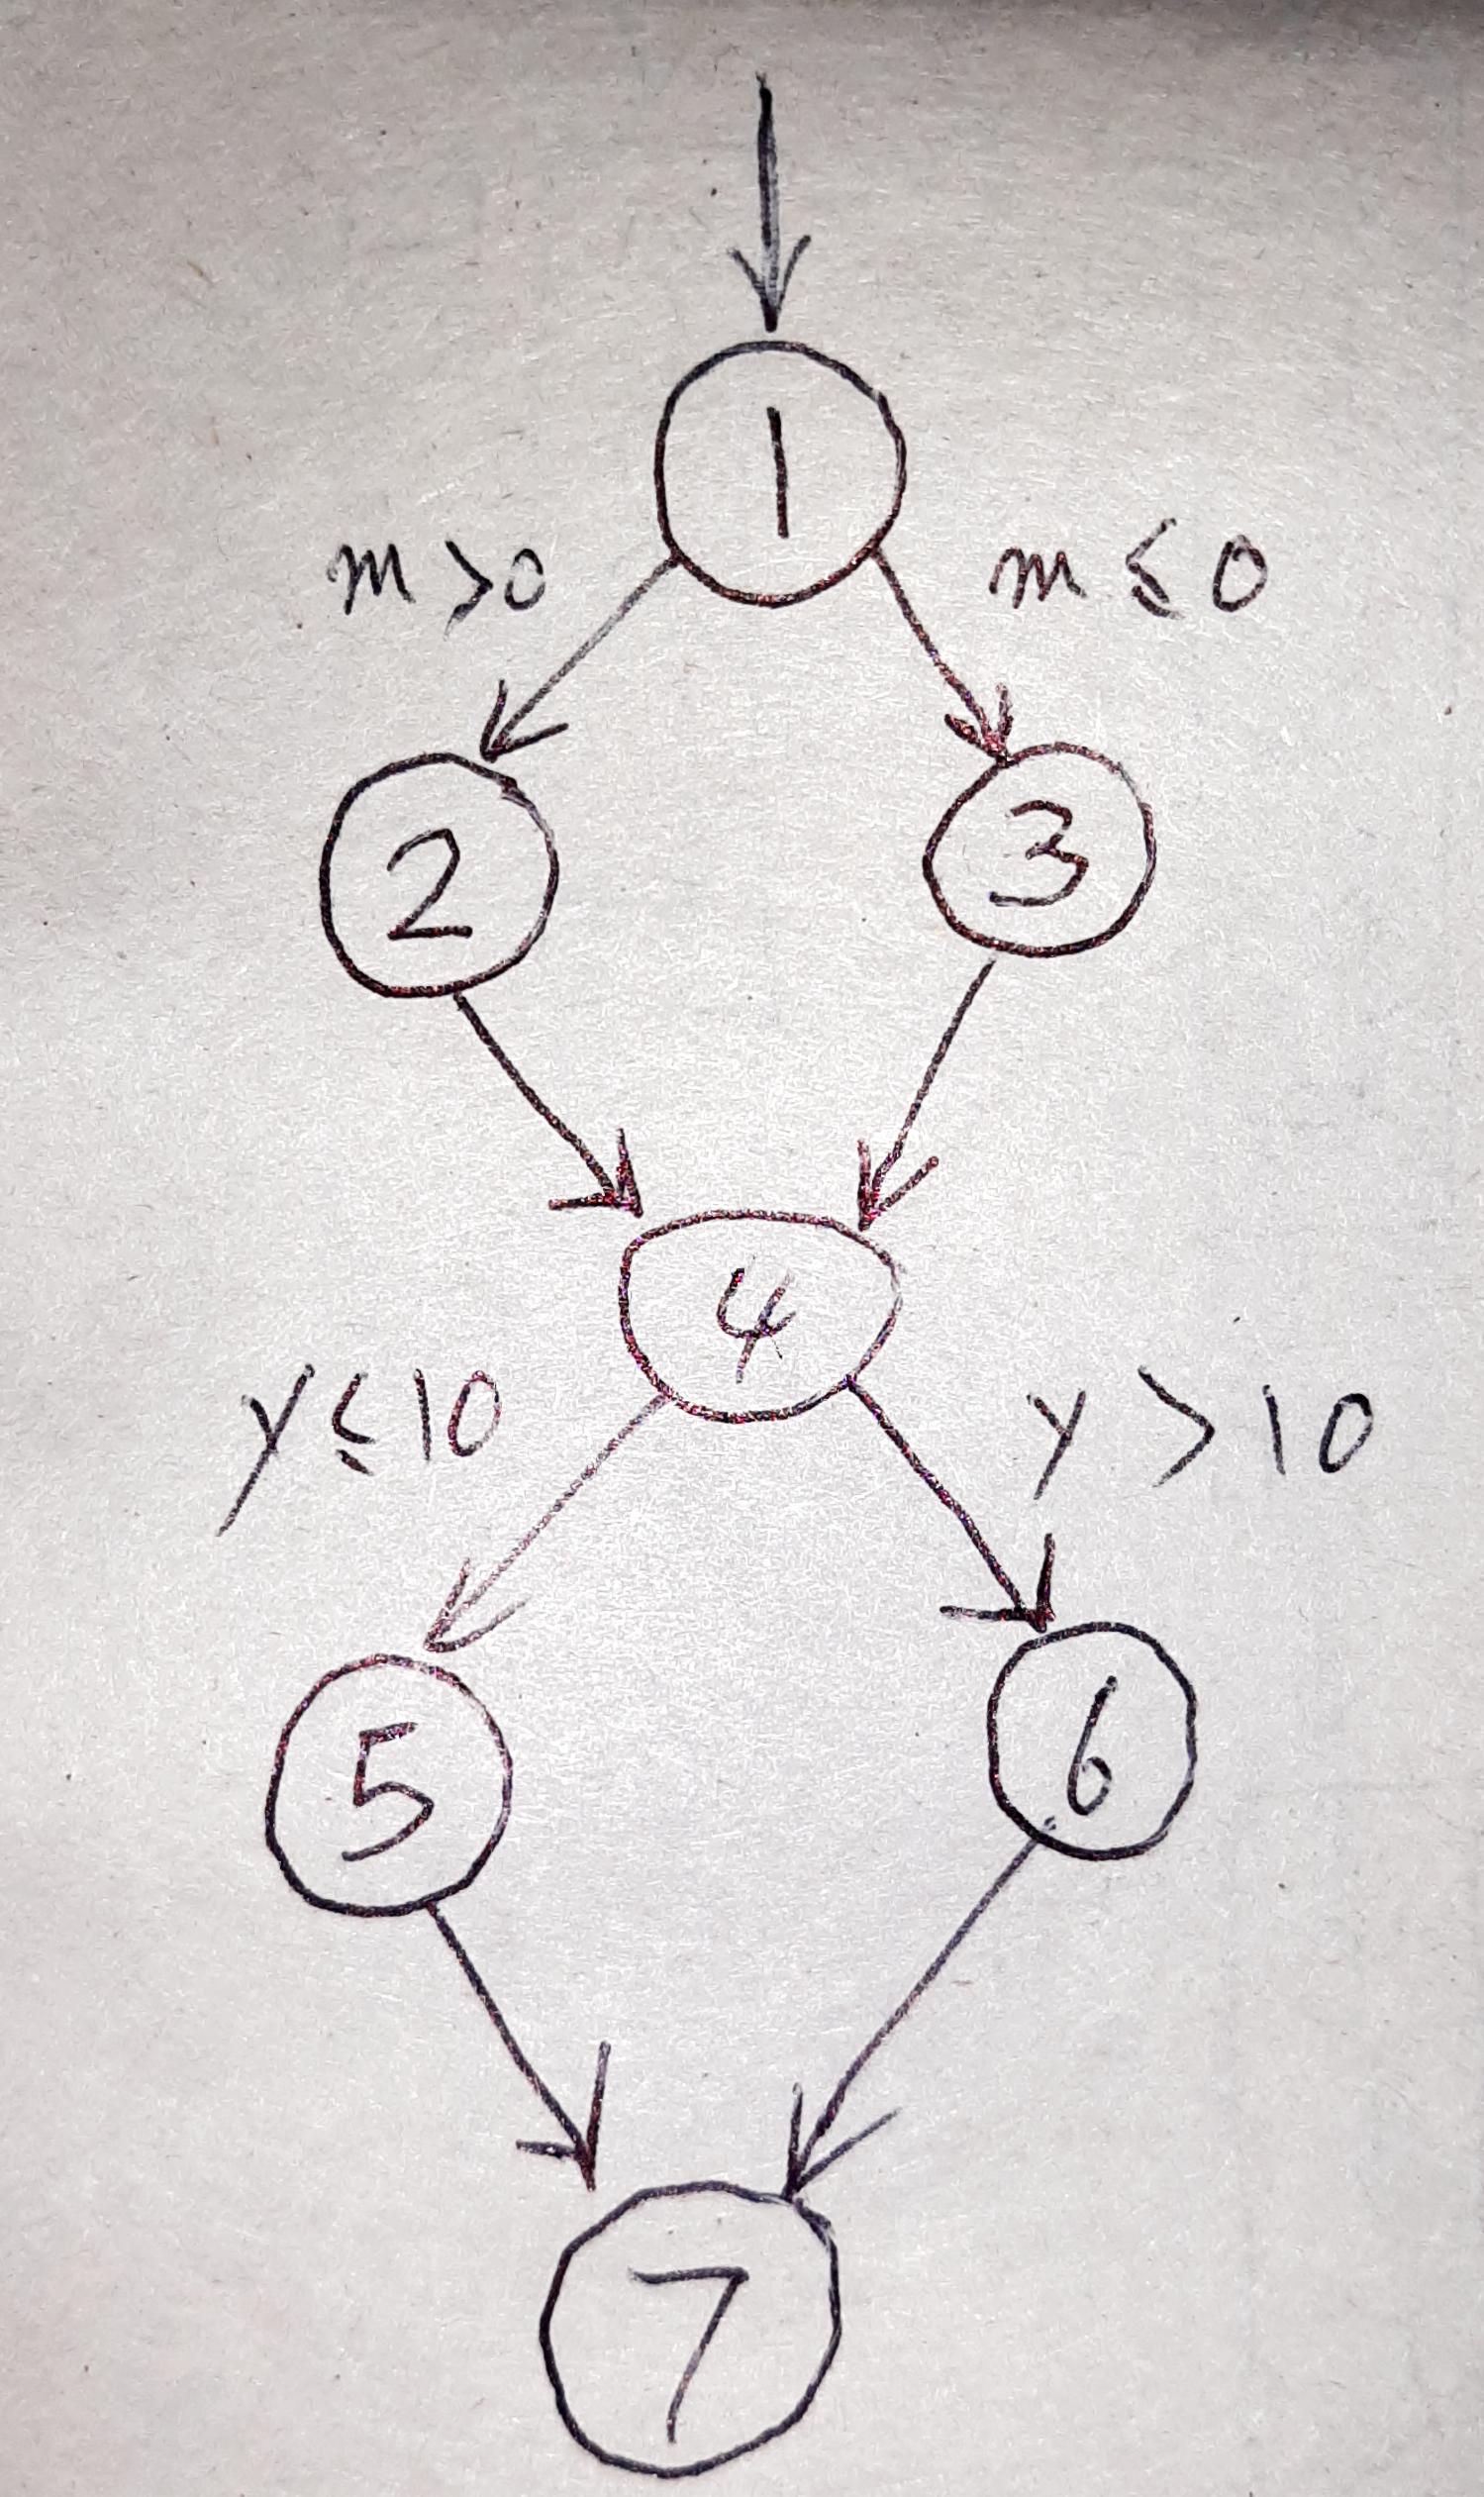 1
m > 0 m ≤ 0
2 3
4
y ≤ 10 y > 10
5 6
7